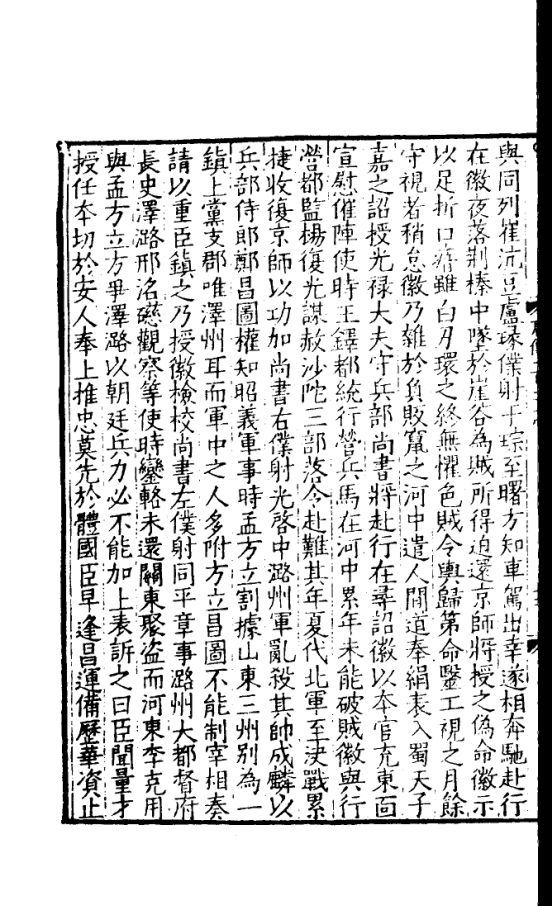 與同列崔沆豆盧瑑僕射于琮至曙方知車駕出幸遂相奔馳赴行
在徽夜落荆榛中墜於崖谷為賊所得迫還京師將授之偽命徽示
以足折口瘖雖白刃環之終無懼色賊令輿歸第命醫工視之月餘
守視者稍怠徽乃雜於負販竄之河中遣人間道奉絹表入蜀天子
嘉之詔授光祿大夫守兵部尚書將赴行在尋詔徽以本官充東面
宣慰催陣使時王鐸都統行營兵馬在河中累年未能破賊徽與行
營都監楊復光謀赦沙陀三部落令赴難其年夏代北軍至決戰累
捷收復京師以功加尚書右僕射光啓中潞州軍亂殺其帥成麟以
兵部侍郎鄭昌圖權知昭義軍事時孟方立割據山東三州別為一
鎮上黨支郡唯澤州耳而軍中之人多附方立昌圖不能制宰相奏
請以重臣鎮之乃授徽檢校尚書左僕射同平章事潞州大都督府
長史澤潞邢洺磁觀察等使時鑾輅未還關東聚盜而河東李克用
與孟方立方爭澤潞以朝廷兵力必不能加上表訴之曰臣聞量才
授任本切於安人奉上推忠莫先於體國臣早逢昌運備歷華資止